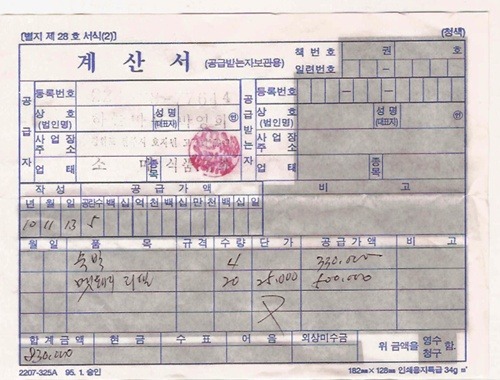 [별지 제 28 호 서식(2)] (청색)
계 산 서 (공급받는자보관용)
책 번 호 권 호
일련번호
공급자
등록번호
상 호 (법인명) 성명 (대표자) ㊞
사업장 주 소
업 태 종목
소 매 식품
공급받는자
성명 (대표자) ㊞
종목
작 성 공 급 가 액 비 고
년 월 일 공란수 백 십 억 천 백 십 만 천 백 십 일
10 11 13 5
월 일 품 목 규 격 수 량 단 가 공 급 가 액 비 고
숙박 4 330,000
20 25,000 500,000
합 계 금 액 현 금 수 표 어 음 외상미수금 위 금액을 영수 청구 함.
830,000
2207-325A 95. 1. 승인 182㎜×128㎜ 인쇄용지특급 34g/㎡